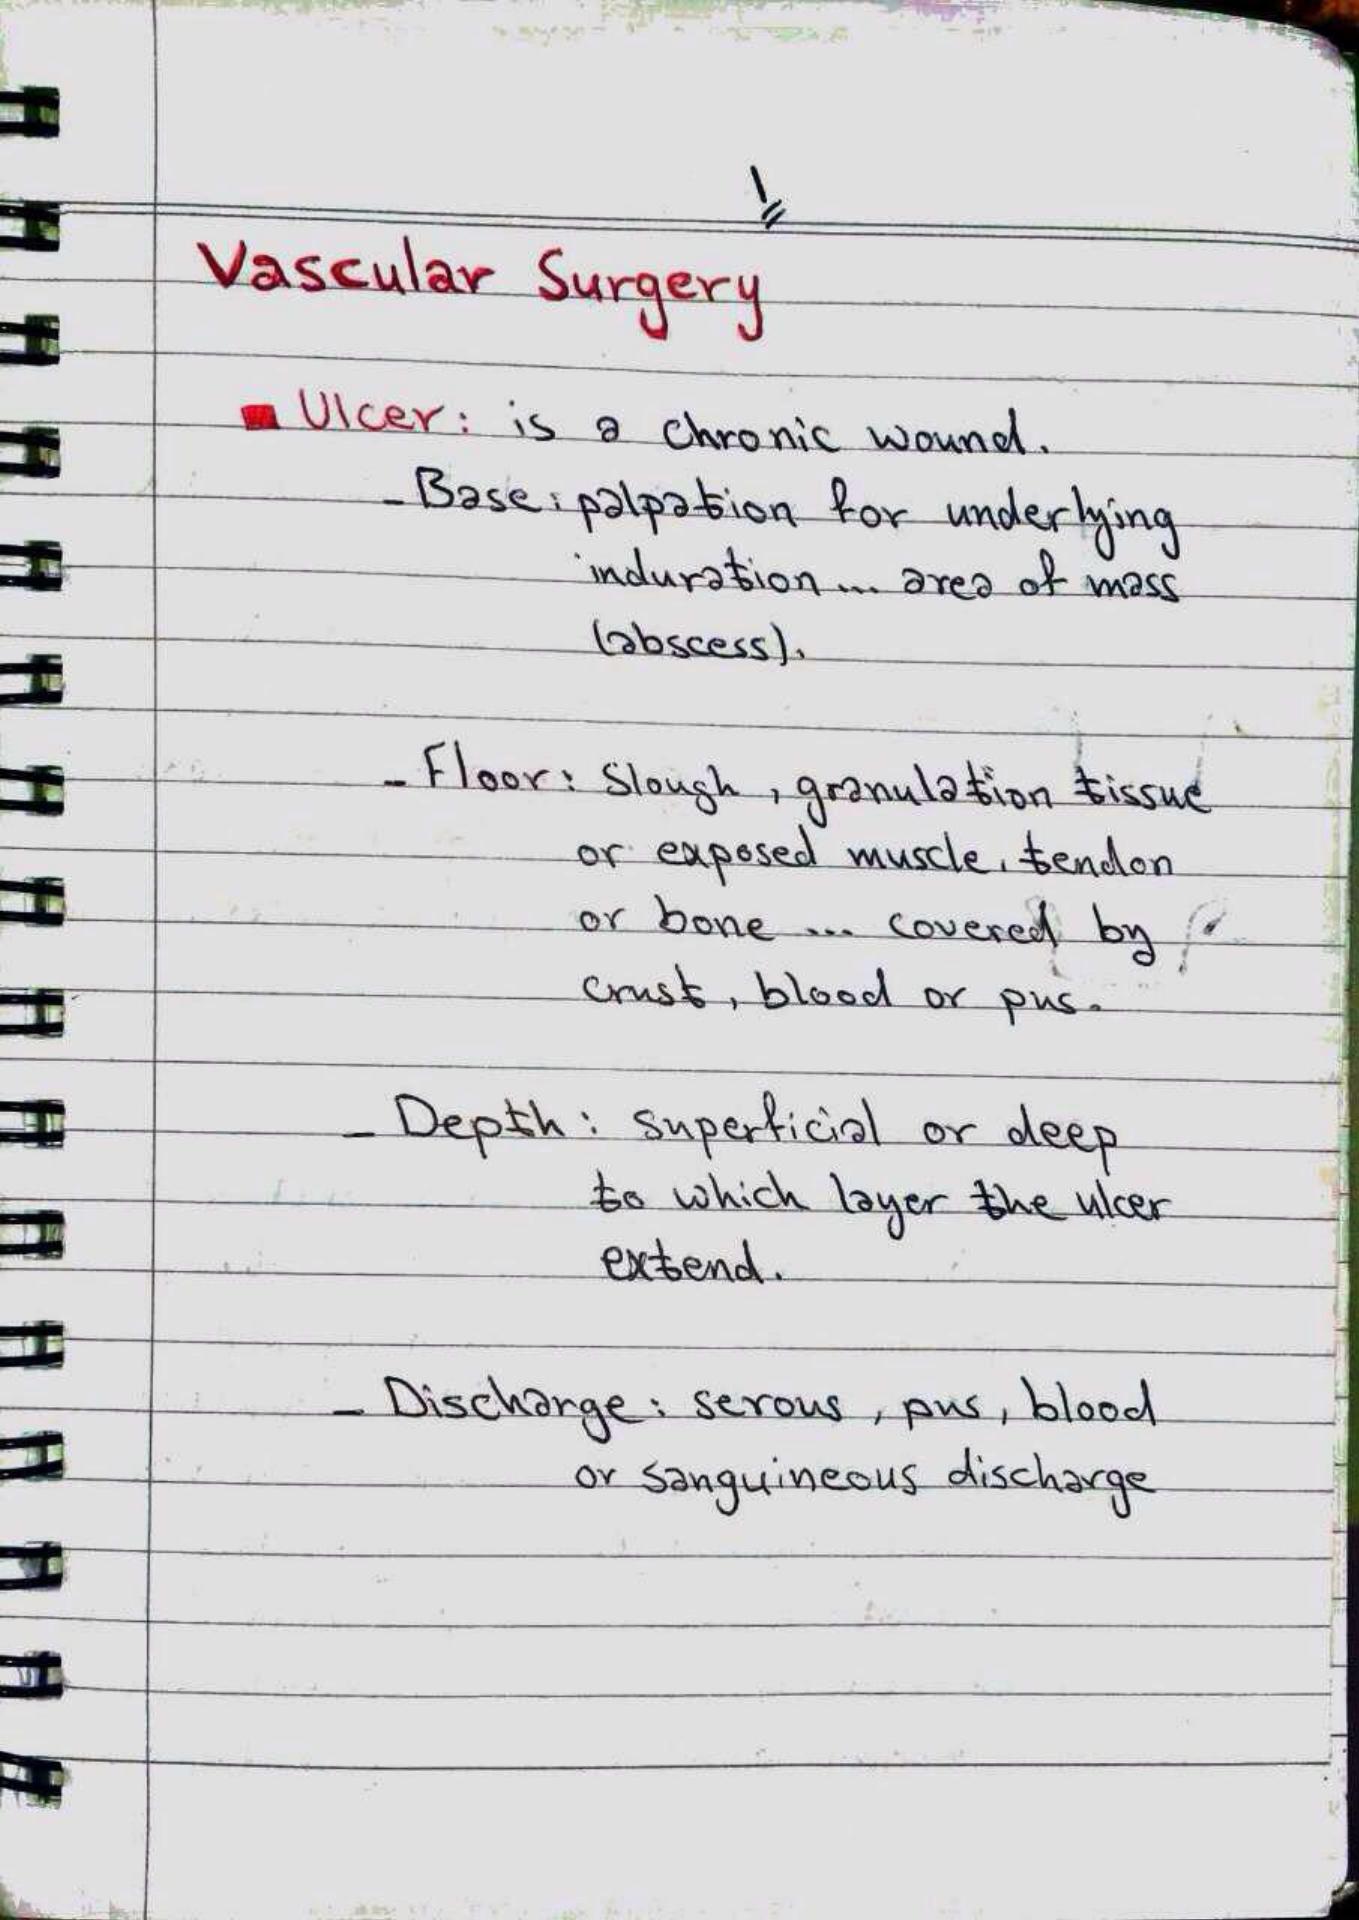 1
Vascular Surgery
Ulcer: is a chronic wound.
- Base: palpation for underlying
induration ... area of mass
(abscess).
- Floor: Slough, granulation tissue
or exposed muscle, tendon
or bone ... covered by
crust, blood or pus.
- Depth: superficial or deep
to which layer the ulcer
extend.
- Discharge: serous, pus, blood
or sanguineous discharge